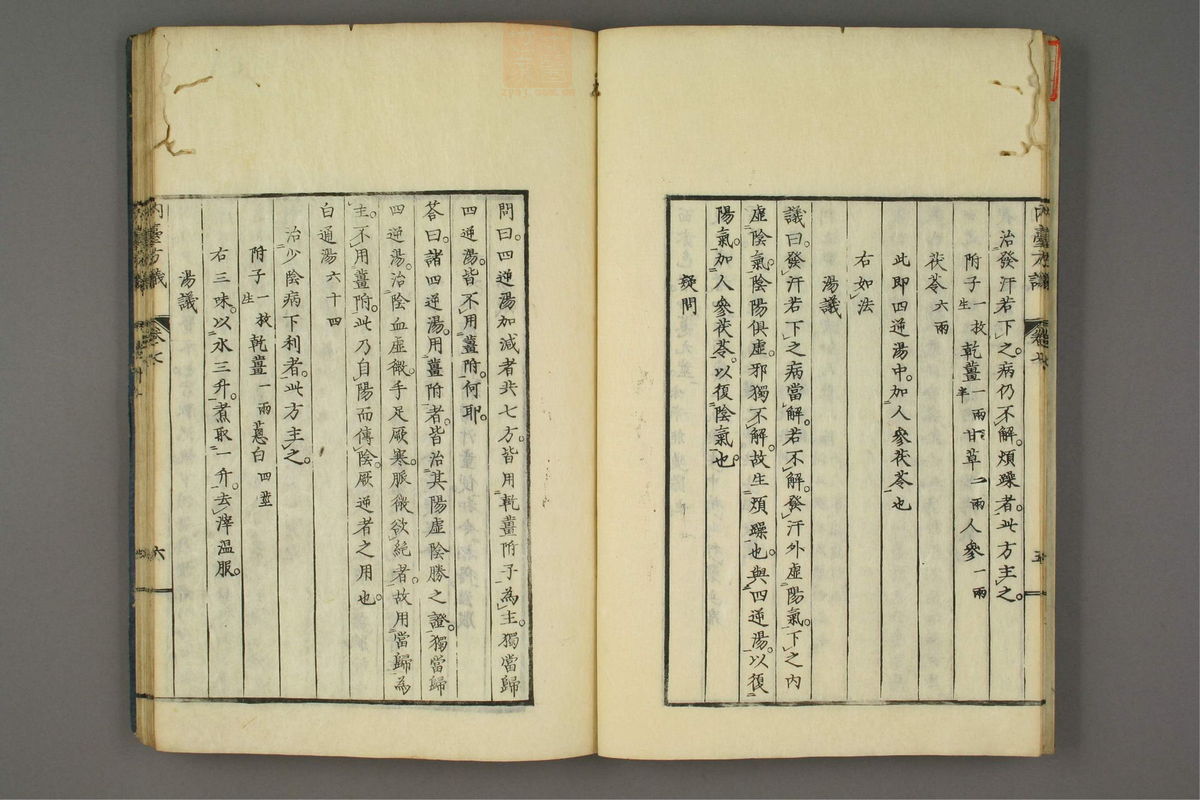 治發汗若下之。病仍不解。煩躁者。此方主之。
附子一枚生 乾薑一兩半 甘草二兩 人參一兩
茯苓六兩
此即四逆湯中加人參茯苓也
右如法
湯議
議曰。發汗若下之病當解。若不解。發汗外虛陽氣。下之內
虛陰氣。陰陽俱虛。邪獨不解。故生煩躁也。與四逆湯。以復
陽氣。加人參茯苓。以復陰氣也。
疑問
問曰。四逆湯加減者共七方。皆用乾薑附子為主。獨當歸
四逆湯。皆不用薑附。何耶。
答曰。諸四逆湯。用薑附者。皆治其陽虛陰勝之證。獨當歸
四逆湯。治陰血虛微。手足厥寒。脈微欲絕者。故用當歸為
主。不用薑附。此乃自陽而傳陰。厥逆者之用也。
白通湯六十四
治少陰病下利者。此方主之。
附子一枚生 乾薑一兩 蔥白四莖
右三味。以水三升。煮取一升。去滓溫服。
湯議
內臺方議 卷七 六